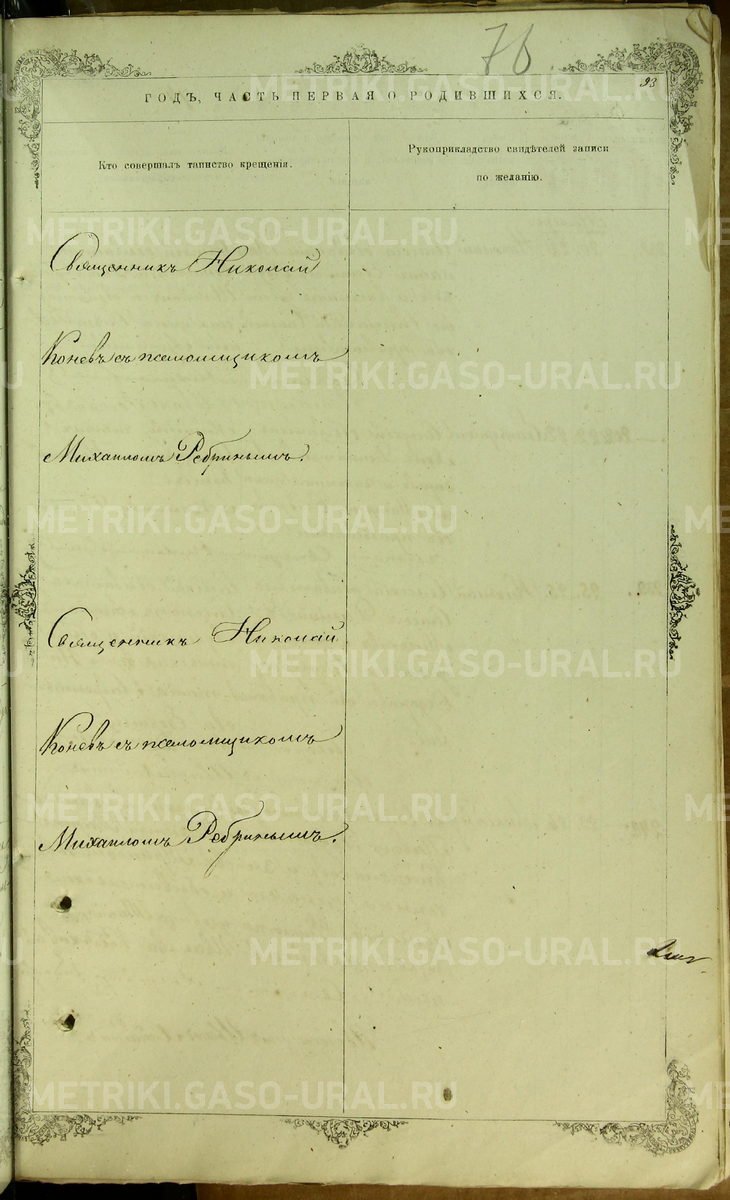 76
93
ГОДЪ, ЧАСТЬ ПЕРВАЯ О РОДИВШИХСЯ.
Кто совершалъ таинство крещенія.
Рукоприкладство свидѣтелей записи
по желанію.
Священникъ Николай
Коневъ съ псаломщикомъ
Михаиломъ Ребринымъ.
Священникъ Николай
Коневъ съ псаломщикомъ
Михаиломъ Ребринымъ.
METRIKI.GASO-URAL.RU